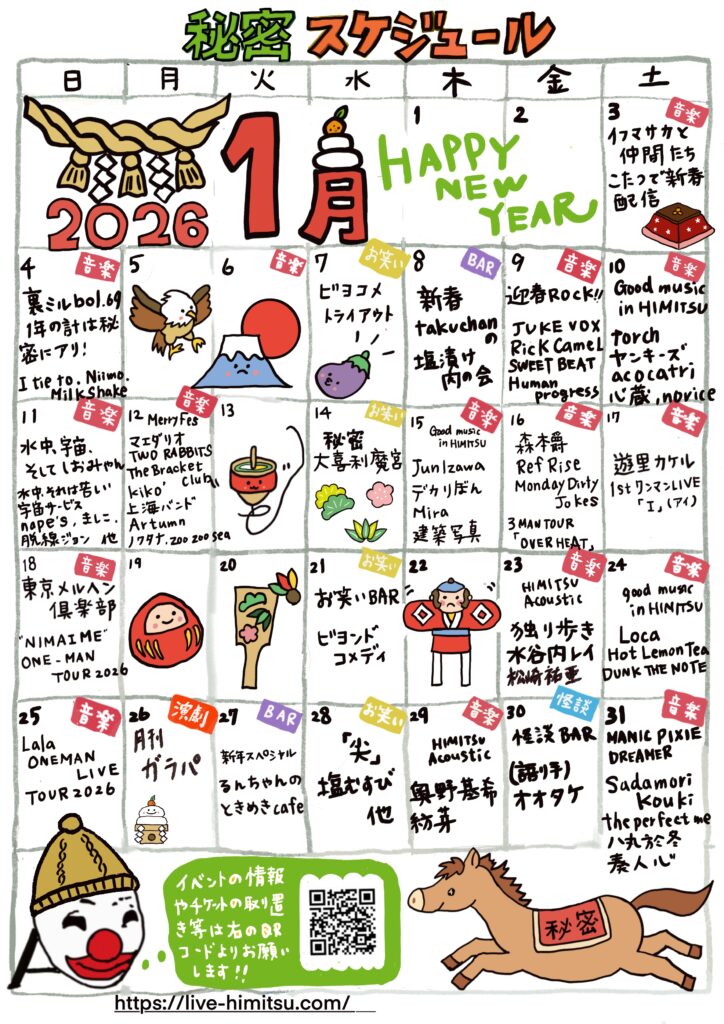 秘密 スケジュール
日 月 火 水 木 金 土
2026
1月
HAPPY
NEW
YEAR
1
2
3 音楽
イマサカと
仲間たち
こたつで新春
配信
4 音楽
裏ミルbol.69
1年の計は秘
密にアリ!
I tie to. Niimo.
Milkshake
5
6 音楽
7 お笑い
ビヨコメ
トライアウト
8 BAR
新春
takuchan
の
塩漬け
内の会
9 音楽
迎春ROCK!!
JUKE VOX
Rick Camel
SWEET BEAT
Human
progress
10 音楽
Good music
in HIMITSU
torch
ヤンキーズ
acocatri
心蔵.norice
11 音楽
水中、宇宙、
そして しおみやん
水中、それは苦しい
宇宙サービス
nape's,ましこ、
脱線ジョン 他
12 音楽
Merry Fes
マエダリオ
TWO RABBITS
The Bracket
kiko' club
上海バンド
Artumn
ノクタナ.zoo zoo sea
13
14 お笑い
秘密
大喜利魔宮
15 音楽
Good music
in HIMITSU
Jun Izawa
デカりぼん
Mira
建築写真
16 音楽
森本爵
Ref Rise
Monday Dirty
Jokes
3MAN TOUR
「OVER HEAT」
17 音楽
遊里カケル
1stワンマンLIVE
「I」(アイ)
18 音楽
東京メルヘン
倶楽部
"NIMAIME"
ONE-MAN
TOUR 2026
19
20
21 お笑い
お笑いBAR
ビヨンド
コメディ
22
23 音楽
HIMITSU
Acoustic
独り歩き
水谷内レイ
松崎祐亜
24 音楽
good music
in HIMITSU
Loca
Hot Lemon Tea
DUNK THE NOTE
25 音楽
Lala
ONEMAN
LIVE
TOUR 2026
26 演劇
月刊
ガラパ
27 BAR
新年スペシャル
るんちゃんの
ときめきcafe
28 お笑い
「尖」
塩むすび
他
29 音楽
HIMITSU
Acoustic
奥野基希
紡芽
30 怪談
怪談BAR
(語り手)
オオタケ
31 音楽
MANIC PIXIE
DREAMER
Sadamori
Kouki
the perfect me
八丸於冬
奏人心
イベントの情報
やチケットの取り置
き等は右のQR
コードよりお願い
します!!
秘密
https://live-himitsu.com/